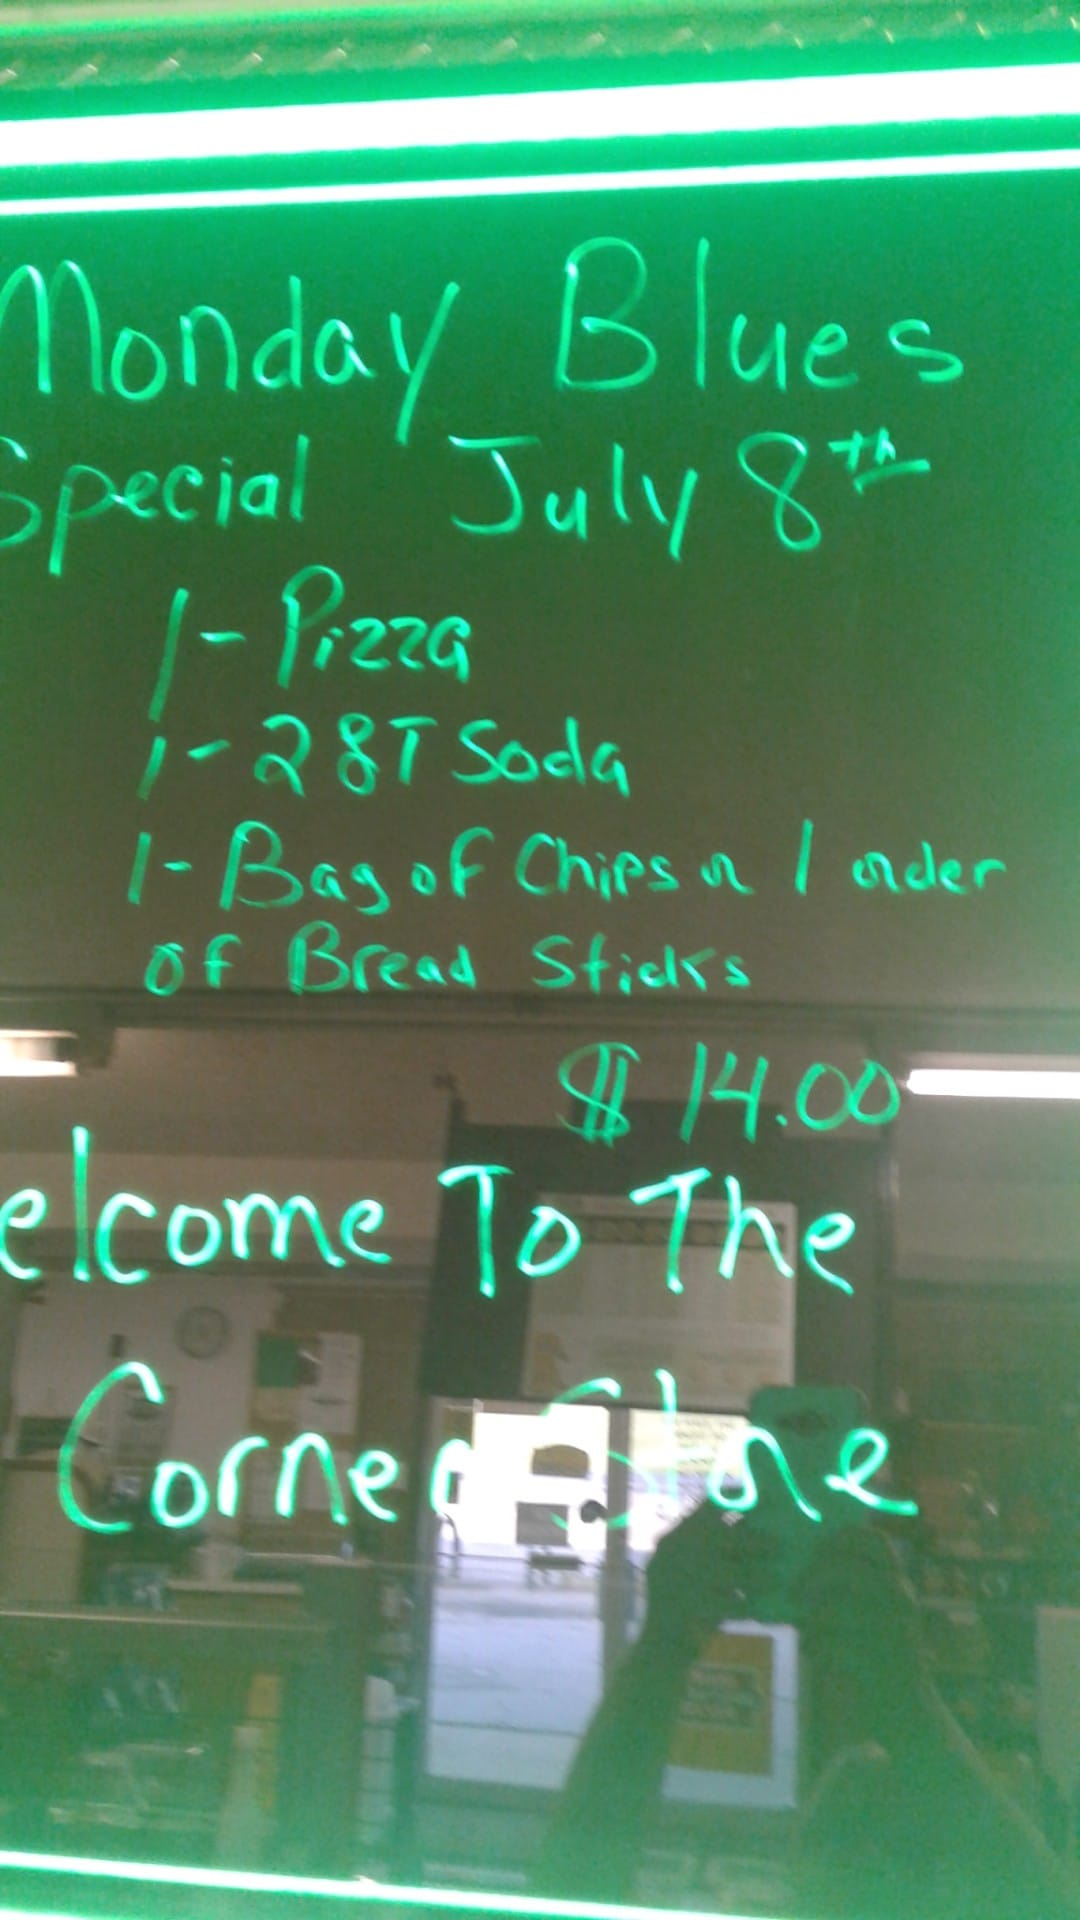 Monday Blues
Special July 8th
1- Pizza
1- 28T Soda
1- Bag of Chips or 1 order
of Bread Sticks
$14.00
elcome To The
Corner Store